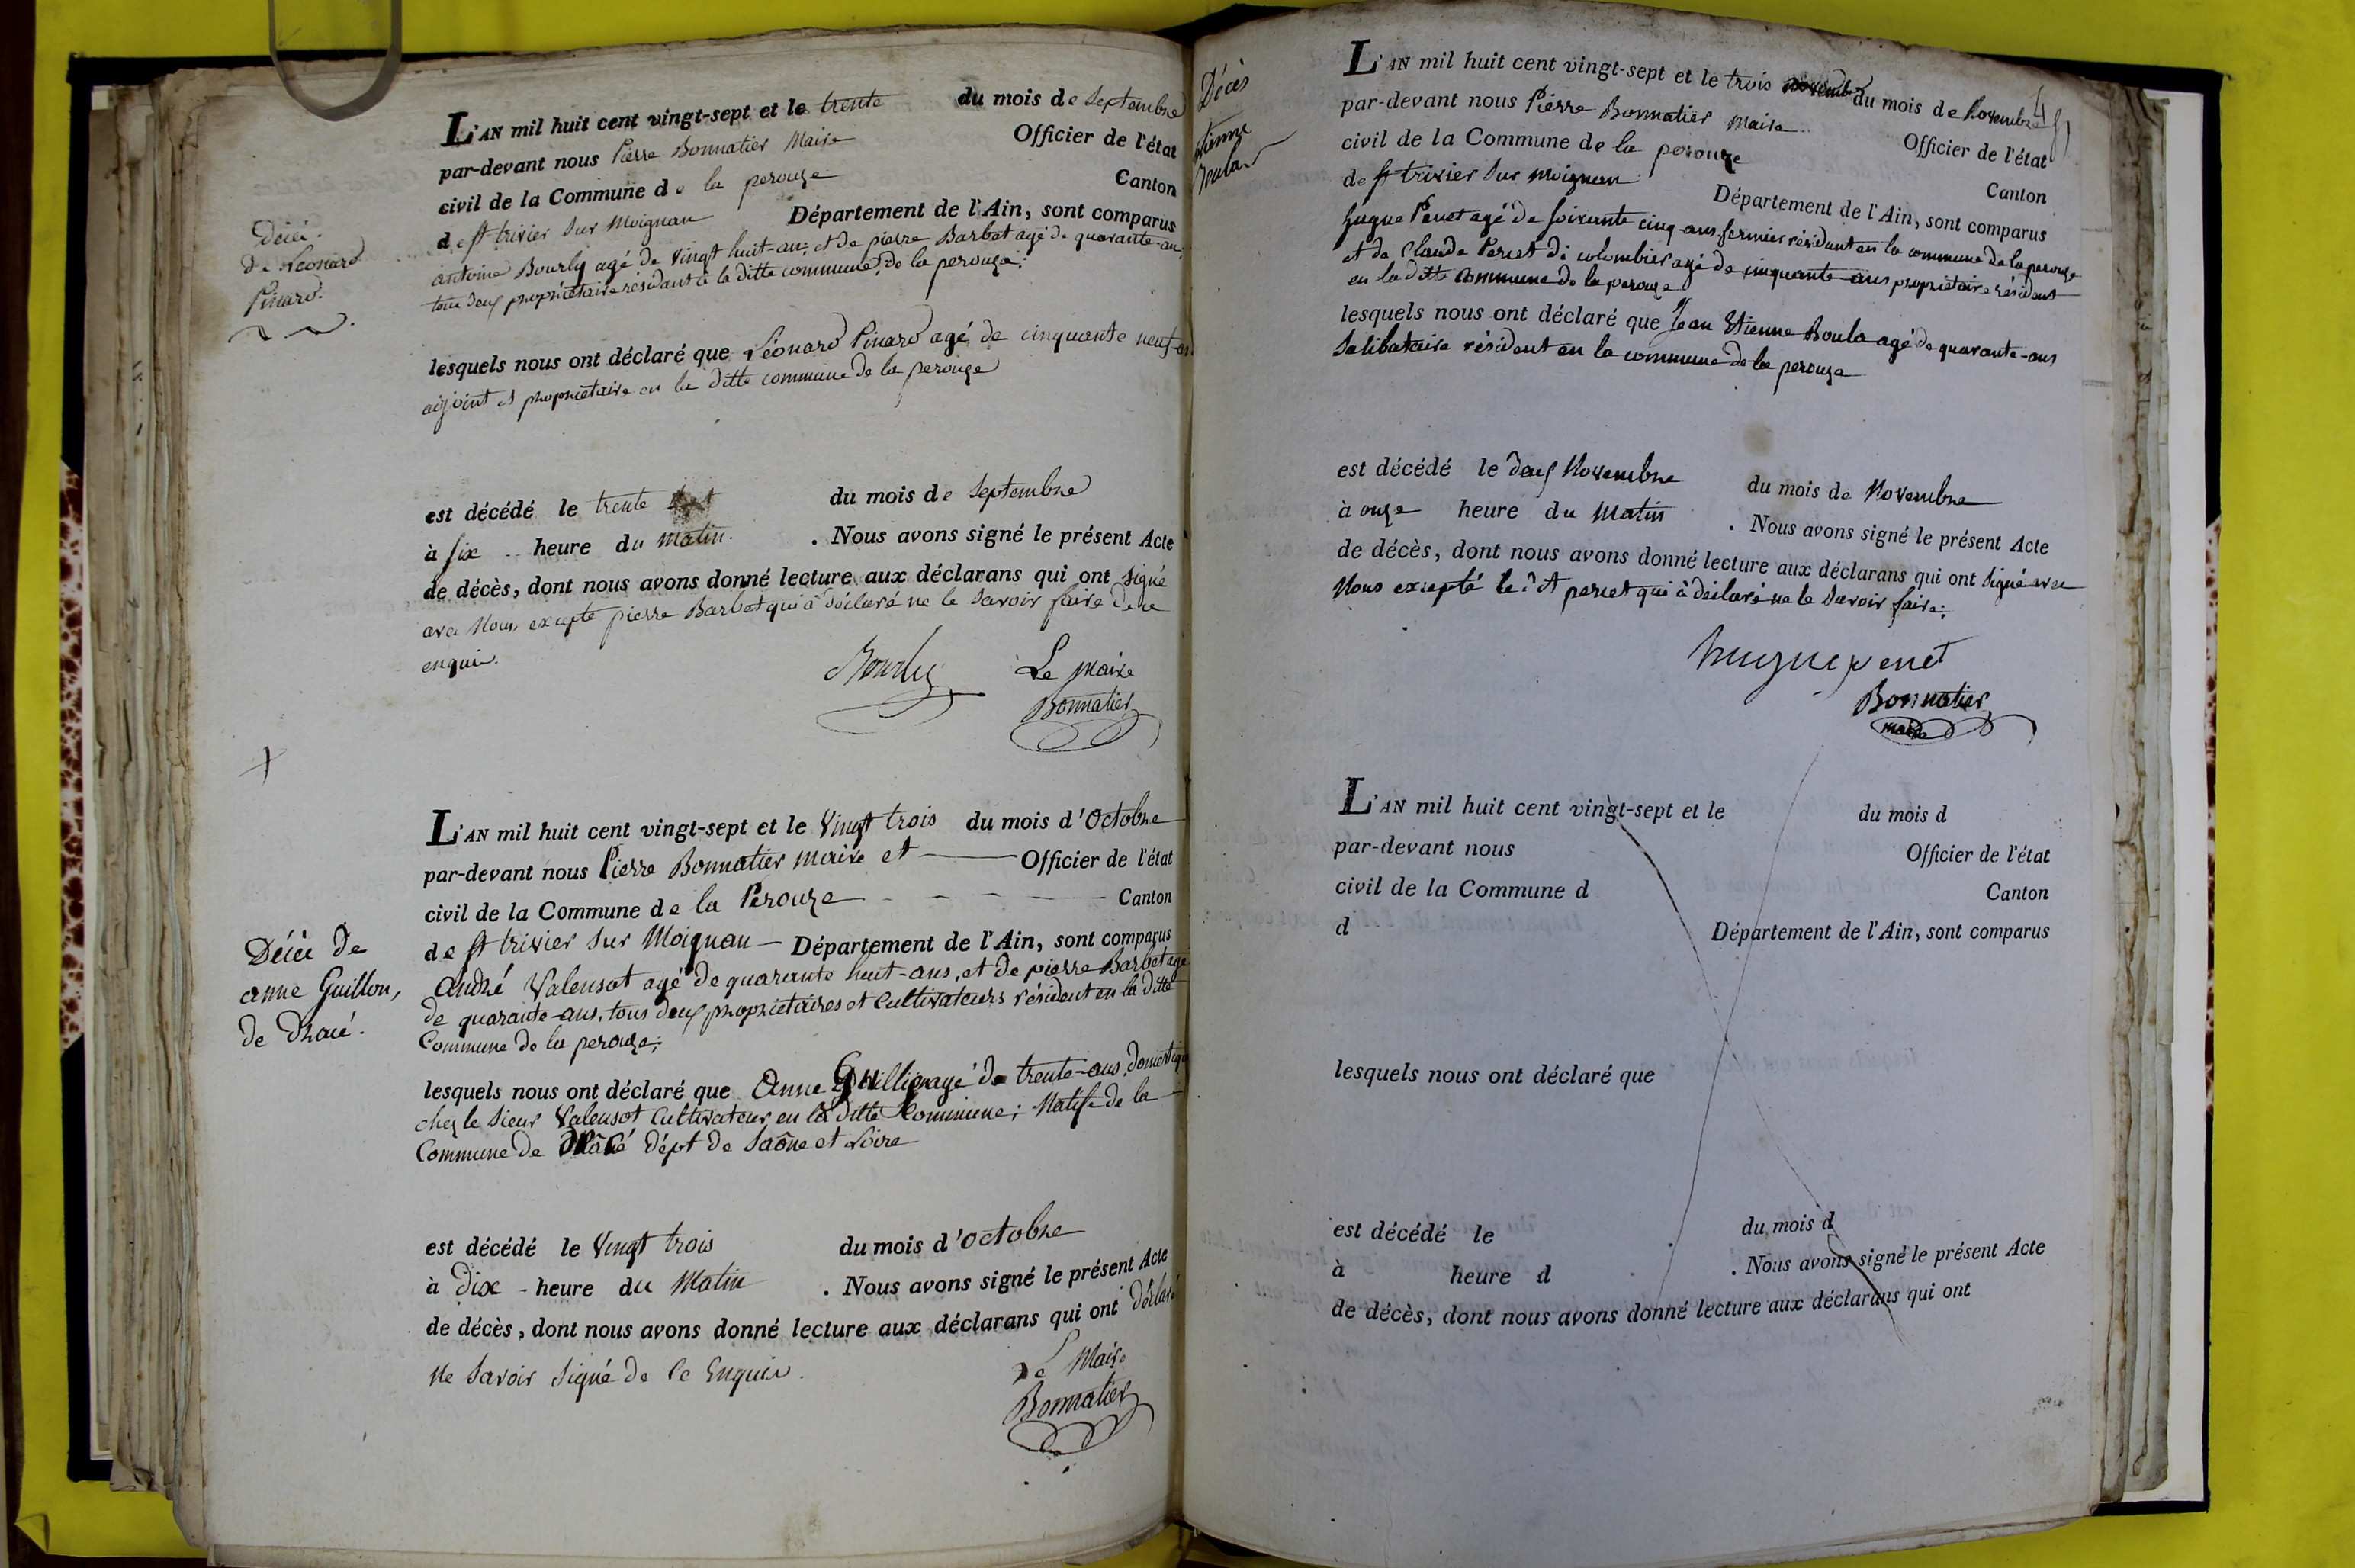 Décé.
De Léonard
Pinard.
L'AN mil huit cent vingt-sept et le trente du mois de Septembre
par-devant nous Pierre Bonnatier Maire Officier de l'état
civil de la Commune de la perouze Canton
de st trivier Sur Moignan Département de l'Ain, sont comparus
antoine Bourly agé de vingt huit-ans, et de pierre Barbet agé de quarante-ans
tous deux propriétaire résidant à la ditte commune, de la perouze;
lesquels nous ont déclaré que Léonard Pinard agé de cinquante neuf-ans
adjoint et propriétaire en la ditte commune de la perouze
est décédé le trente du mois de Septembre
à six heure du matin. . Nous avons signé le présent Acte
de décès, dont nous avons donné lecture aux déclarans qui ont signé
avec Nous, excepté pierre Barbet qui à déclaré ne le savoir faire de ce
enquis.
Bourly Le Maire
Bonnatier
Décè de
anne Guillon,
de Dracé.
L'AN mil huit cent vingt-sept et le Vingt trois du mois d'Octobre
par-devant nous Pierre Bonnatier maire et Officier de l'état
civil de la Commune de la Perouze Canton
de st trivier Sur Moignan Département de l'Ain, sont comparus
André Valensot agé de quarante huit-ans, et de pierre Barbet agé
de quarante-ans, tous deux propriétaires et Cultivateurs résident en la ditte
Commune de la perouze;
lesquels nous ont déclaré que Anne Guillon agé de trente-ans, Domestique
chez le Sieur Valensot Cultivateur en la ditte Commune; Natife de la
Commune de Dracé dépt de Saône et Loire
est décédé le Vingt trois du mois d'Octobre
à Dix heure du Matin . Nous avons signé le présent Acte
de décès, dont nous avons donné lecture aux déclarans qui ont déclaré
ne savoir signé de ce Enquis.
Le Maire
Bonnatier
Décès
etienne
Boula
L'AN mil huit cent vingt-sept et le trois du mois de Novembre
par-devant nous Pierre Bonnatier Maire Officier de l'état
civil de la Commune de la perouze Canton
de st trivier Sur Moignan Département de l'Ain, sont comparus
hugue Penet agé de soixante cinq-ans fermier résidant en la commune de la perouze
et de Claude Percet di colombier agé de cinquante-ans propriétaire résident
en la ditte commune de la perouze
lesquels nous ont déclaré que Jean Etienne Boula agé de quarante-ans
Salibataire résident en la commune de la perouze
est décédé le deux Novembre du mois de Novembre
à onze heure du Matin . Nous avons signé le présent Acte
de décès, dont nous avons donné lecture aux déclarans qui ont signé avec
Nous excepté le dit percet qui à déclaré ne le savoir faire;
hugue penet
Bonnatier
maire
L'AN mil huit cent vingt-sept et le du mois d
par-devant nous Officier de l'état
civil de la Commune d Canton
d Département de l'Ain, sont comparus
lesquels nous ont déclaré que
est décédé le du mois d
à heure d . Nous avons signé le présent Acte
de décès, dont nous avons donné lecture aux déclarans qui ont